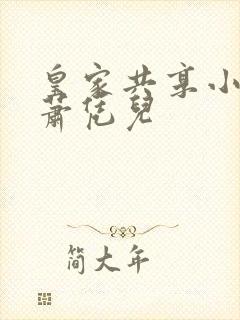 皇家共享小
萧恁儿
简大年